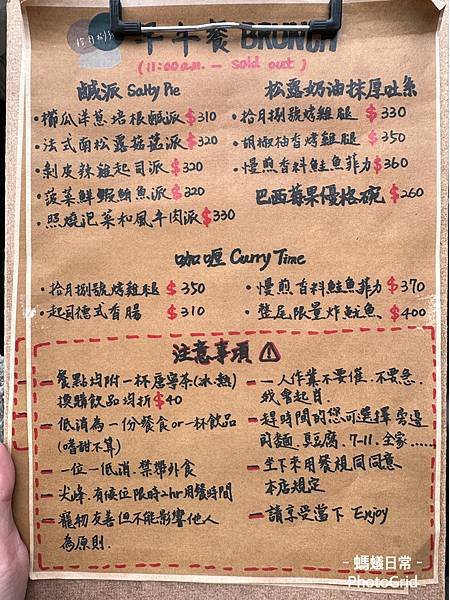 拾月捌號
早午餐 BRUNCH
(11:00a.m. — sold out)
鹹派 Salty Pie
・櫛瓜洋蔥培根鹹派 $310
・法式南松露蘑菇派 $320
・剝皮辣雞起司派 $320
・菠菜鮮蝦鮪魚派 $320
・照燒泡菜和風牛肉派 $330
松露奶油抹厚吐司
・拾月捌號烤雞腿 $330
・胡椒柚香烤雞腿 $350
・慢煎香料鮭魚菲力 $360
巴西莓果優格碗 $260
咖哩 Curry Time
・拾月捌號烤雞腿 $350
・起司德式香腸 $310
・慢煎香料鮭魚菲力 $370
・整尾限量炸魷魚 $400
注意事項 ⚠
— 餐點均附一杯唐寧茶(冰.熱)
換購飲品均折 $40
— 低消為一份餐食 or 一杯飲品
(嗜甜不算)
— 一位一低消.禁帶外食
— 尖峰.有候位限時2hr用餐時間
— 寵物友善但不能影響他人
為原則.
— 一人作業不要催.不要急.
我會起肖.
— 趕時間的您可選擇旁邊
的麵.臭豆腐.7-11.全家......
— 坐下來用餐視同同意
本店規定
— 請享受當下 Enjoy
- 螞蟻日常 -
PhotoGrid